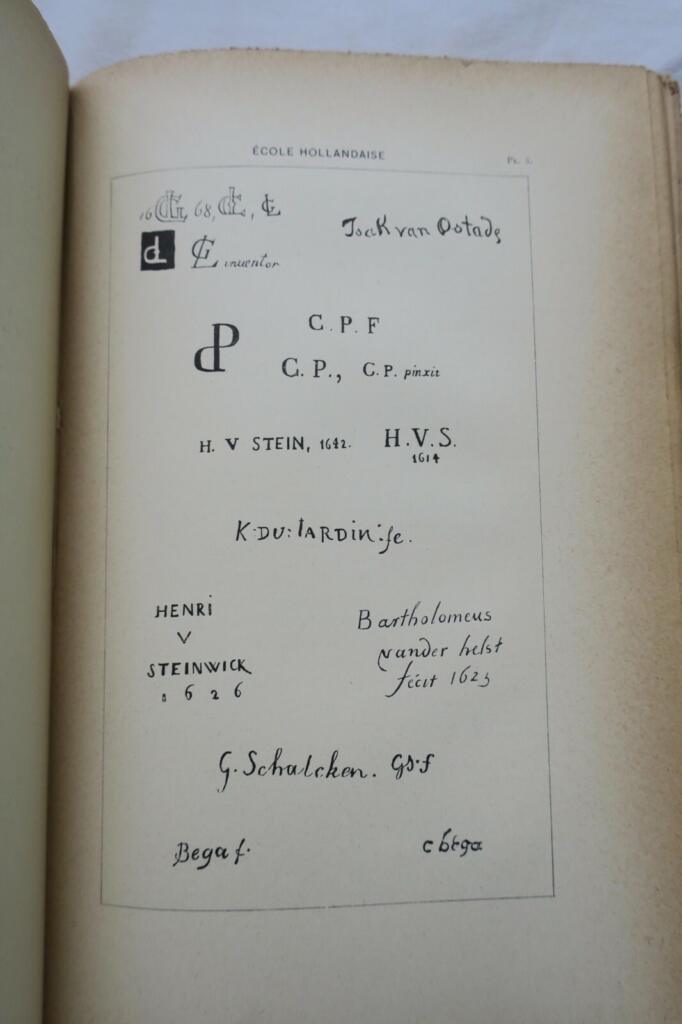 ÉCOLE HOLLANDAISE
PL. 5.
16 GL 68, GL, GL
Isack van Ostade
GL inventor
C. P. F
dP
C. P., C. P. pinxit
H. V STEIN, 1642. H.V.S.
1614
K·DU: IARDin:fe.
HENRi
V
STEINWICK
1 6 2 6
Bartholomeus
vander helst
fecit 1625
G. Schalcken. GS·f
Bega f.
c bega